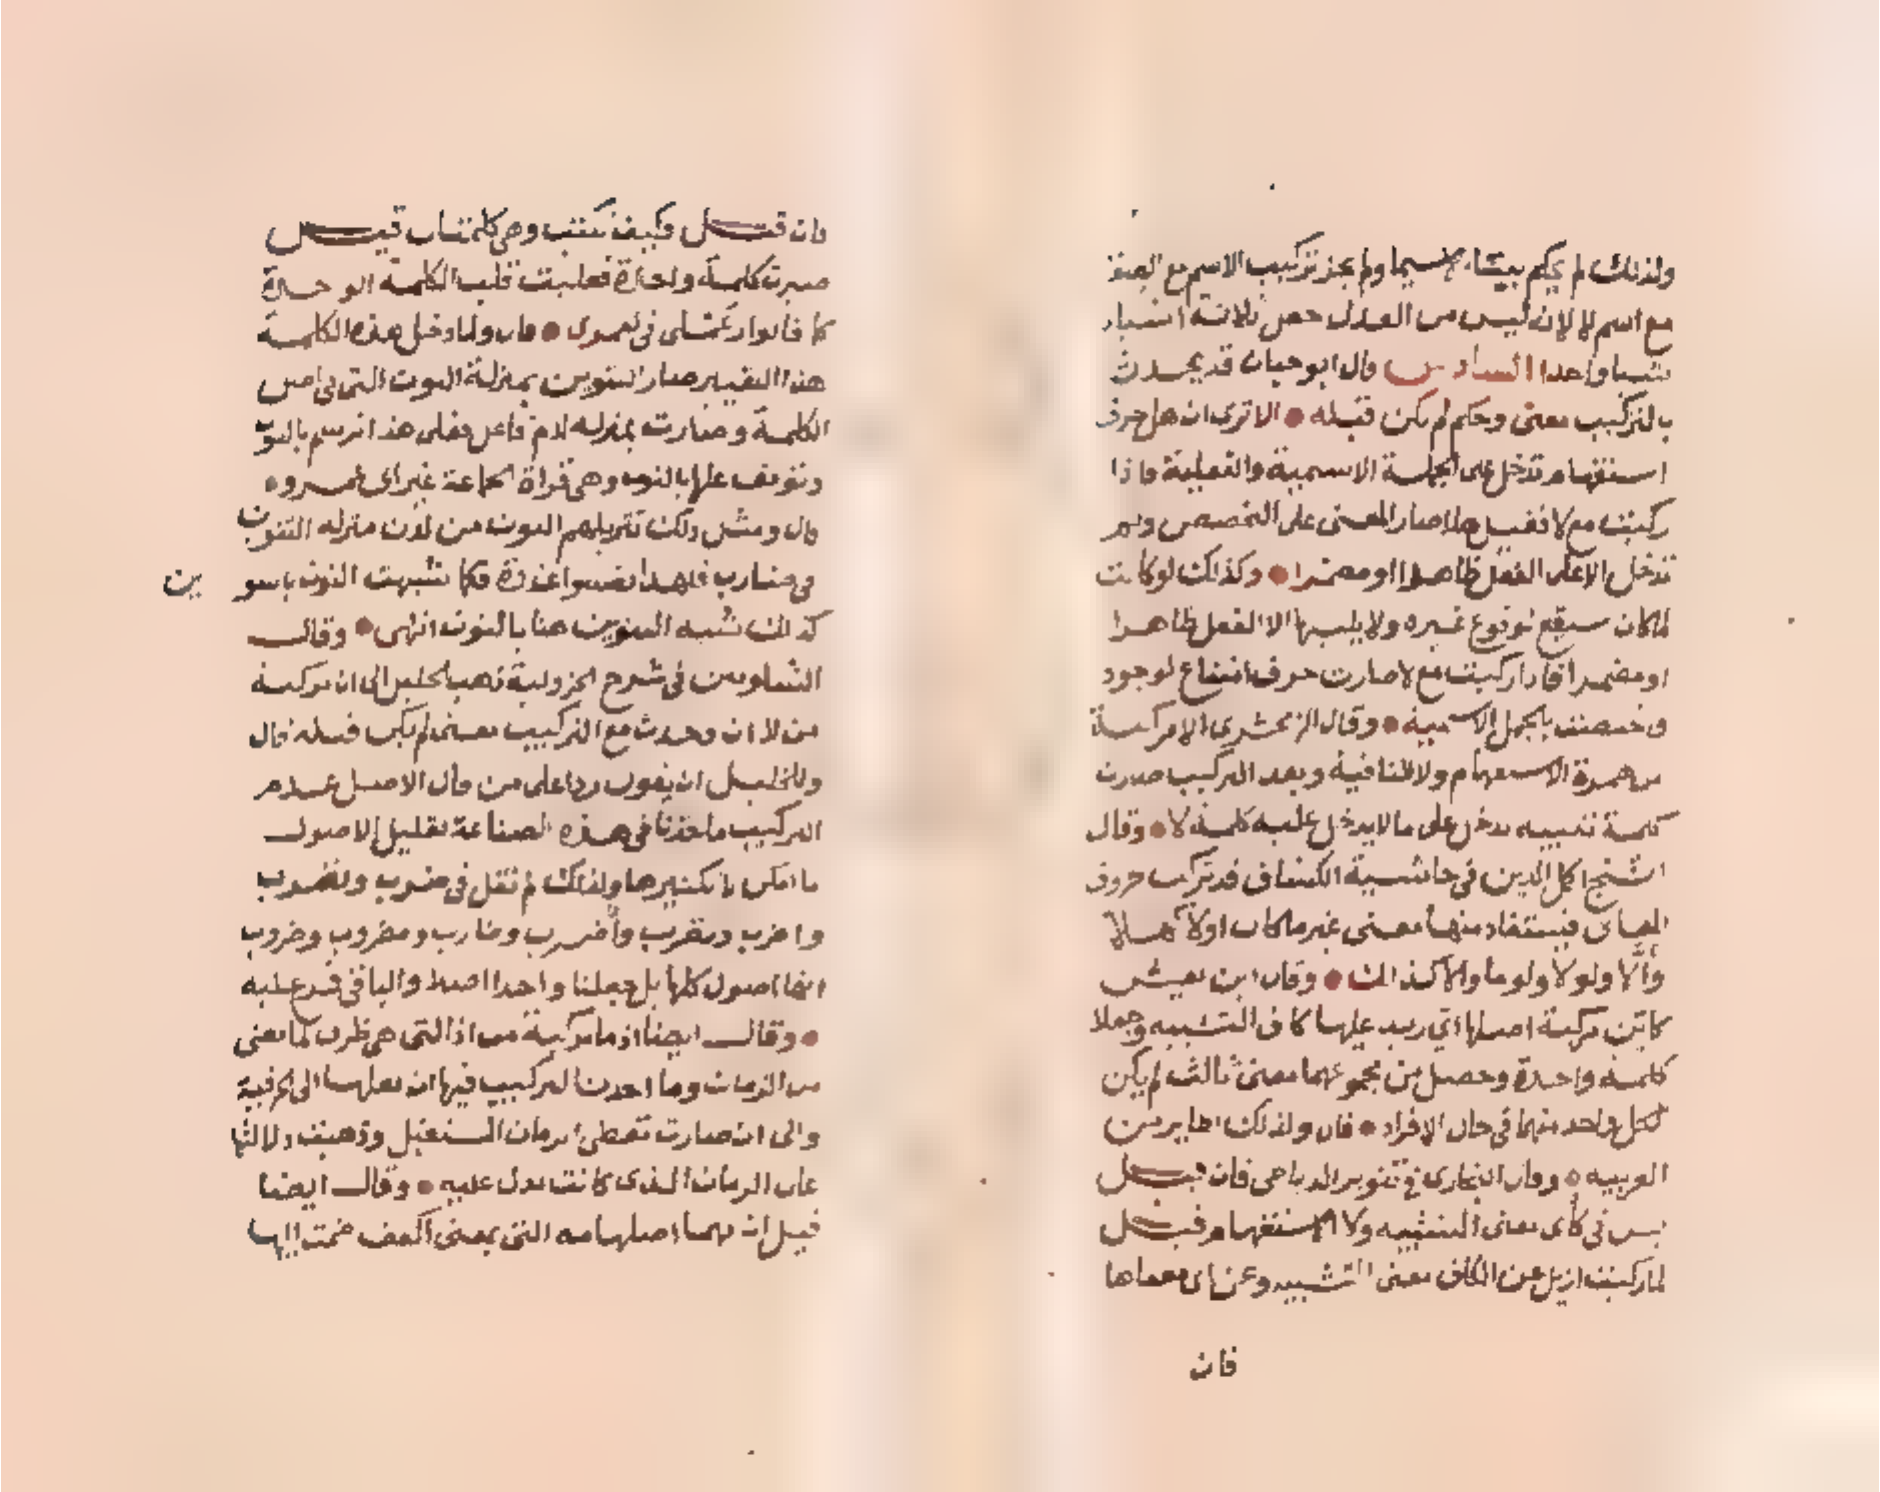 ولذلك لم يحكم ببناء لاسيما ولم يجز تركيب الاسم مع الصفة
مع اسم لا لان ليس من العدل جعل ثلاثة اشياء
شيا واحدا السادس قال ابو حيان قد يحدث
بالتركيب معنى وحكم لم يكن قبله الا ترى ان هل حرف
استفهام تدخل على الجملة الاسمية والفعلية فاذا
ركبت مع لا فقيل هلا صار المعنى على التخصيص ولم
تدخل الا على الفعل ظاهرا او مضمرا وكذلك لو كانت
لما كان سيقع لوقوع غيره ولا يليها الا الفعل ظاهرا
او مضمرا فاذا ركبت مع لا صارت حرف امتناع لوجود
واختصت بالجمل الاسمية وقال الزمخشري الا مركبة
من همزة الاستفهام ولا النافية وبعد التركيب صارت
كلمة تنبيه تدخل على ما لا يدخل عليه كلمة لا وقال
الشيخ اكمل الدين في حاشية الكشاف قد تركب حروف
المعاني فيستفاد منها معنى غير ما كان اولا كهلا
وألا ولولا ولوما والا كذلك وقال ابن يعيش
كاين مركبة اصلها اي زيد عليها كاف التشبيه وجعلا
كلمة واحدة وحصل من مجموعهما معنى ثالث لم يكن
لكل واحد منهما في حال الافراد قال ولذلك نظاير من
العربيه وقال في تنوير الدياجي فان قيل
ليس في كأى معنى التشبيه ولا الاستفهام قيل
لما ركبت ازيل عن الكاف معنى التشبيه وعن اي معناها
فان
فان قيل فكيف كتبت وهي كلمتان قيل
صيرت كلمة واحدة فقلبت قلب الكلمة الواحدة
كما قالوا رعملى في لعمرى قال ولما دخل هذه الكلمة
هذا التغيير صار التنوين بمنزلة النون التي في اصل
الكلمة وصارت بمنزله لام فاعل فعلى هذا ترسم بالنون
وتوقف عليها بالنون وهي قراة الجماعة غير ابى عمرو
قال ومثل ذلك تنزيلهم النون من لدن منزله التنوين
في ضارب فلهذا نصبوا غدوة فكما شبهت النون بالتنو
ين
كذلك شبه التنوين هنا بالنون انتهى وقال
الشلوبين في شرح الجزولية ذهب الخليل الى ان لن مركبة
من لا ان وحدث مع التركيب معنى لم يكن قبله قال
وللخليل ان يقول ردا على من قال الاصل عدم
التركيب ماخذنا في هذه الصناعة تقليل الاصول
ما امكن لا تكثيرها ولذلك لم نقل في ضرب ويضرب
واضرب ونضرب وأضرب وضارب ومضروب وضروب
انها اصول كلها بل جعلنا واحدا اصلا والباقي فرع عليه
وقال ايضا اذما مركبة من اذ التي هي ظرف لما مضى
من الزمان وما احدث التركيب فيها ان نقلها الى الحرفية
والى ان صارت تعطى الزمان المستقبل وذهبت دلالتها
على الزمان الذى كانت تدل عليه وقال ايضا
قيل ان مهما اصلها مه التي بمعنى اكفف ضمت اليها